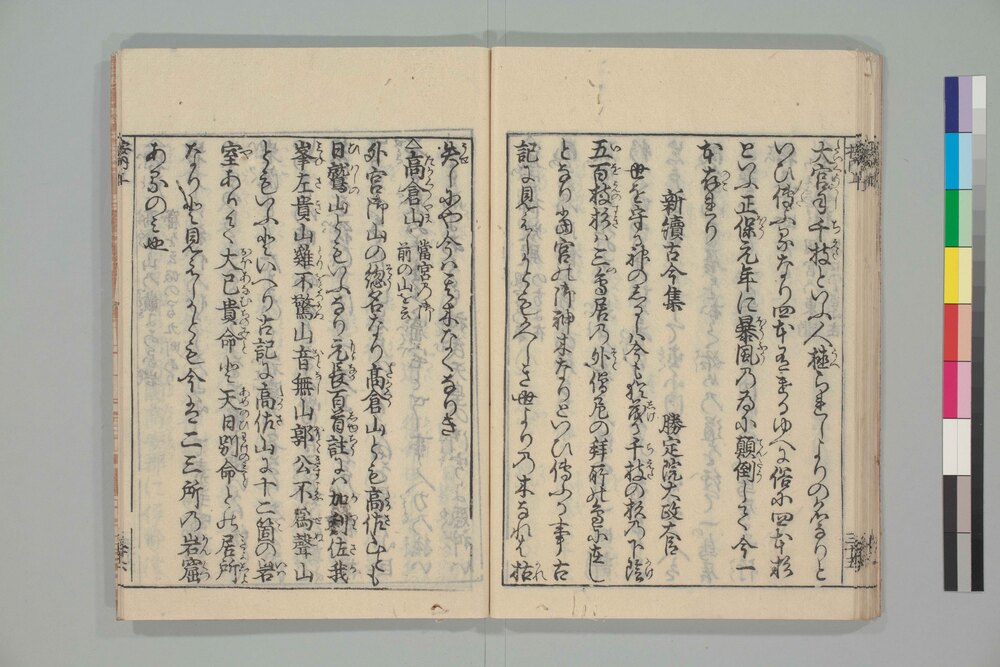 大宮司千枝といふ人植られしよりの名なりと
いひ傳ふるなり四本有けるゆへに俗に四本杉
といふ正保元年に暴風乃為に顛倒して今一
本存れり
新續古今集 勝定院大政大臣
世を守る神のしるしハ今も猶茂る千枝の杉乃下陰
五百枝杉ハ三鳥居乃外僧尼の拜所の前に在し
となり當宮の御神木なりといひ傳ふる事古
記に見えしかとも久しき世よりの木なれハ枯
失しにや今ハ其木なくなりき
△高倉山 當宮乃御前の山を云
外宮御山の惣名なり高倉山とも高佐山とも
日鷲山ともいふなり元長百首註にハ加利佐我
峯左貴山雞不驚山音無山郭公不為聲山
ともいふといへり古記に高佐山に十二箇の岩
室ありて大己貴命と天日別命との居所
なりと見えしかとも今は二三所乃岩窟
あるのミ也